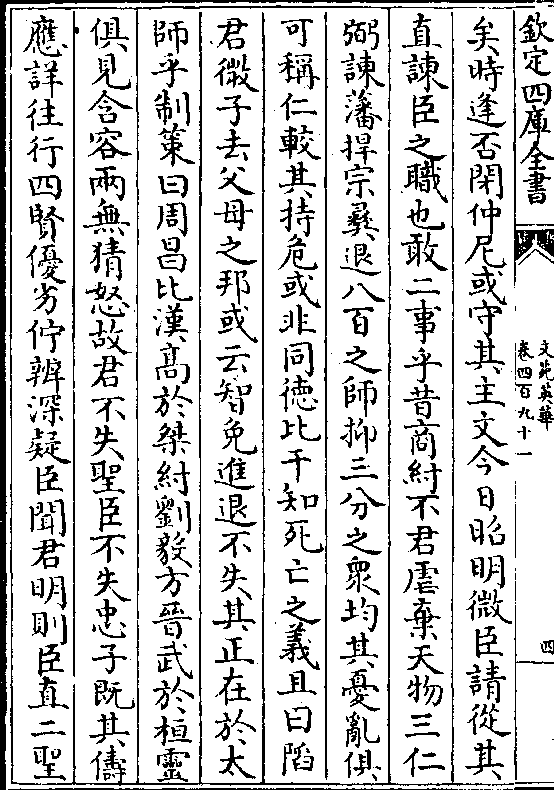 欽定四庫全書
文苑英華
卷四百九十一
四
矣時逢否閉仲尼或守其主文今日昭明微臣請從其
直諫臣之職也敢二事乎昔商紂不君虐棄天物三仁
弼諫藩捍宗彞退八百之師抑三分之衆均其憂亂俱
可稱仁較其持危或非同徳比干知死亡之義且曰陷
君微子去父母之邦或云智免進退不失其正在於太
師乎制策曰周昌比漢髙於桀紂劉毅方晉武於桓靈
俱見含容兩無猜怒故君不失聖臣不失忠子既其儔
應詳往行四賢優劣佇辨深疑臣聞君明則臣直二聖